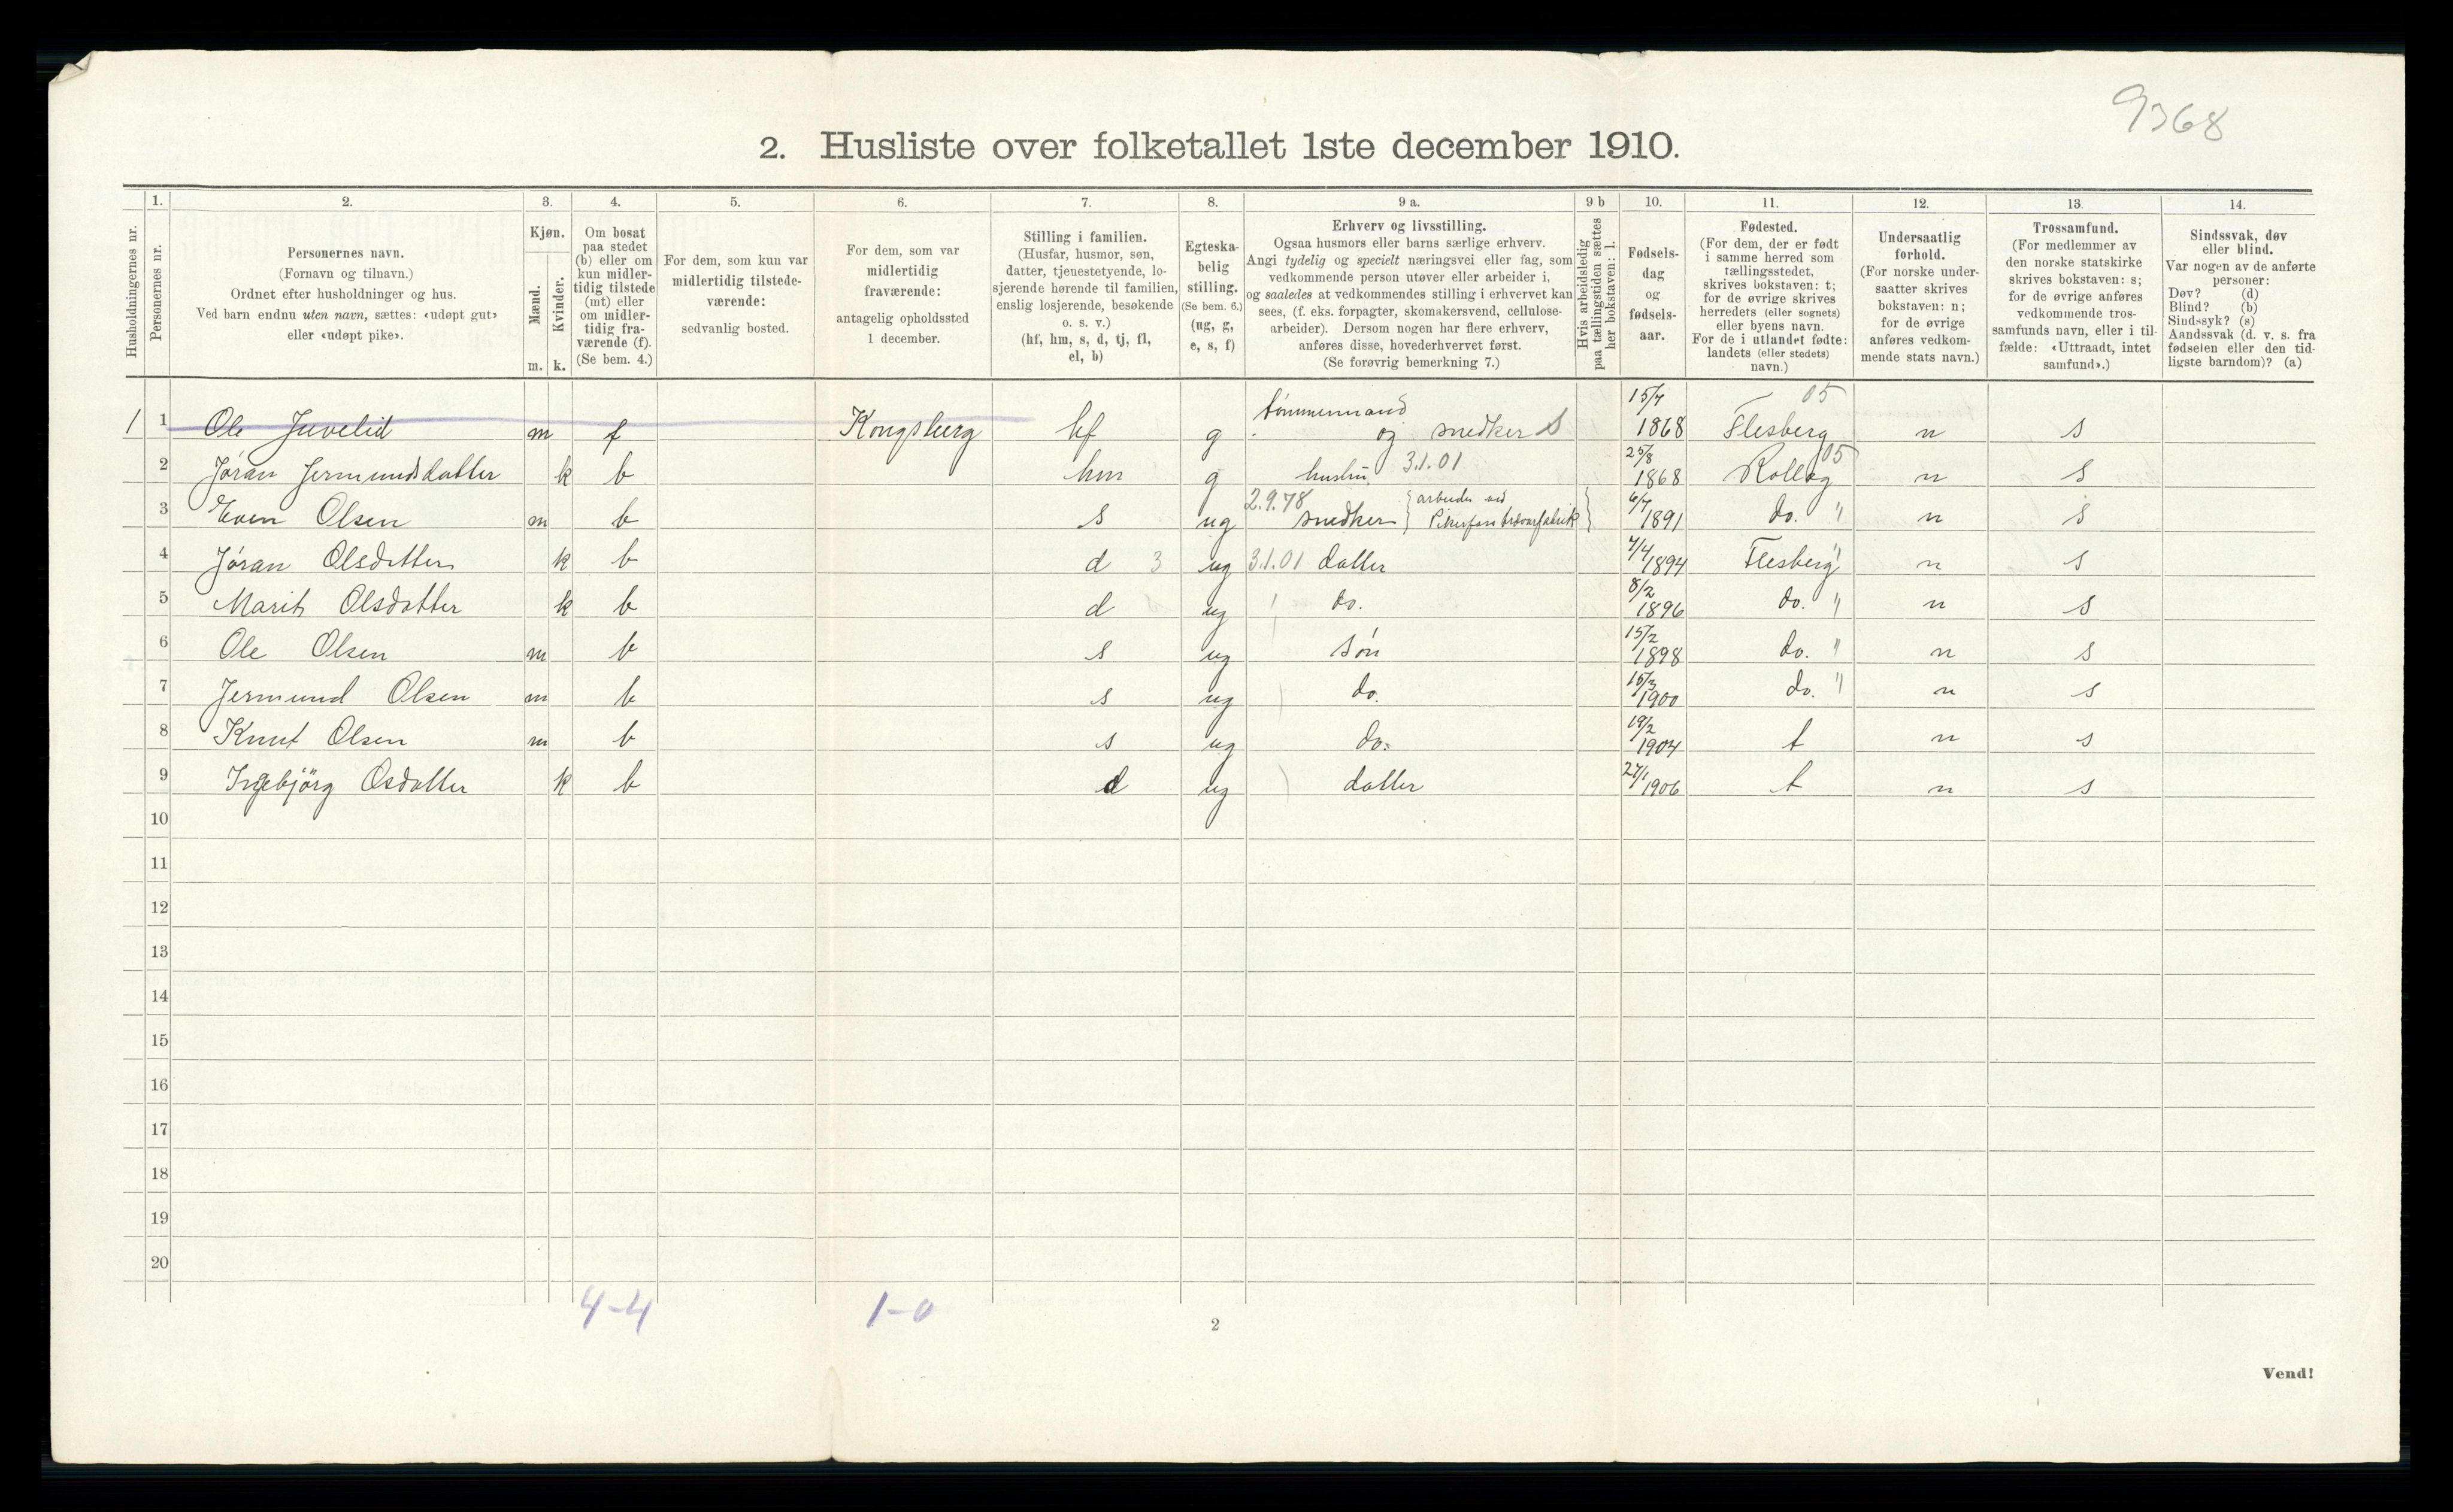 9368
2. Husliste over folketallet 1ste december 1910.
Husholdningernes nr.
1.
Personernes nr.
2.
Personernes navn.
(Fornavn og tilnavn.)
Ordnet efter husholdninger og hus.
Ved barn endnu uten navn, sættes: «udøpt gut»
eller «udøpt pike».
3.
Kjøn.
Mænd.
Kvinder.
m. k.
4.
Om bosat
paa stedet
(b) eller om
kun midler-
tidig tilstede
(mt) eller
om midler-
tidig fra-
værende (f).
(Se bem. 4.)
5.
For dem, som kun var
midlertidig tilstede-
værende:
sedvanlig bosted.
6.
For dem, som var
midlertidig
fraværende:
antagelig opholdssted
1 december.
7.
Stilling i familien.
(Husfar, husmor, søn,
datter, tjenestetyende, lo-
sjerende hørende til familien,
enslig losjerende, besøkende
o. s. v.)
(hf, hm, s, d, tj, fl,
el, b)
8.
Egteska-
belig
stilling.
(Se bem. 6.)
(ug, g,
e, s, f)
9 a.
Erhverv og livsstilling.
Ogsaa husmors eller barns særlige erhverv.
Angi tydelig og specielt næringsvei eller fag, som
vedkommende person utøver eller arbeider i,
og saaledes at vedkommendes stilling i erhvervet kan
sees, (f. eks. forpagter, skomakersvend, cellulose-
arbeider). Dersom nogen har flere erhverv,
anføres disse, hovederhvervet først.
(Se forøvrig bemerkning 7.)
9 b
Hvis arbeidsledig
paa tællingstiden sættes
her bokstaven: l.
10.
Fødsels-
dag
og
fødsels-
aar.
11.
Fødested.
(For dem, der er født
i samme herred som
tællingsstedet,
skrives bokstaven: t;
for de øvrige skrives
herredets (eller sognets)
eller byens navn.
For de i utlandet fødte:
landets (eller stedets)
navn.)
12.
Undersaatlig
forhold.
(For norske under-
saatter skrives
bokstaven: n;
for de øvrige
anføres vedkom-
mende stats navn.)
13.
Trossamfund.
(For medlemmer av
den norske statskirke
skrives bokstaven: s;
for de øvrige anføres
vedkommende tros-
samfunds navn, eller i til-
fælde: «Uttraadt, intet
samfund».)
14.
Sindssvak, døv
eller blind.
Var nogen av de anførte
personer:
Døv? (d)
Blind? (b)
Sindssyk? (s)
Aandssvak (d. v. s. fra
fødselen eller den tid-
ligste barndom)? (a)
tømmermand 15/7 05
1 1 Ole Juvelid m f Kongsberg hf g og snedker S 1868 Flesberg n s
3.1.01 25/8 05
2 Jøran Jermundsdatter k b hm g hustru 1868 Rollag n s
2.9.78 arbeider ved 6/7
3 Even Olsen m b s ug snedker 1891 do. " n s
4 Jøran Olsdatter k b d 3 ug 3.1.01 datter 7/4 1894 Flesberg " n s
5 Marit Olsdatter k b d ug do. 8/2 1896 do. " n s
6 Ole Olsen m b s ug søn 15/2 1898 do. " n s
7 Jermund Olsen m b s ug do. 15/3 1900 do. " n s
8 Knut Olsen m b s ug do. 19/2 1904 t n s
9 Ingebjörg Osdatter k b d ug datter 27/1 1906 t n s
10
11
12
13
14
15
16
17
18
19
20
4-4 1-0
2
Vend!